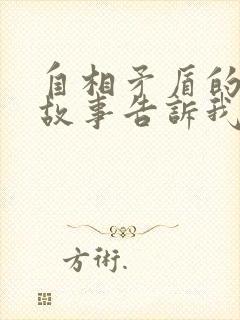 自相矛盾的
故事告訴我
方術.